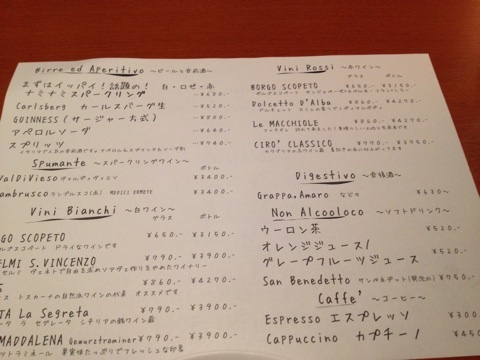 Birre ed Aperitivo ～ビールと食前酒～
まずはイッパイ！話題の！
ナミナミスパークリング 白・ロゼ・赤
Carlsberg カールスバーグ生 ¥520.-
GUINNESS (サージャー方式)
アペロールソーダ ¥640.-
スプリッツ ¥740.-
Spumante ～スパークリングワイン～ ボトル
ValDiVieso ¥3400.-
ambrusco ランブルスコ(赤) MEDICI ERMETE ¥3400.-
Vini Bianchi ～白ワイン～
グラス ボトル
GO SCOPETO ドライなワインです ¥650.- ¥3150.-
ELMI S.VINCENZO ¥790.- ¥3900.-
¥860.- ¥4270.-
トスカーナの自然派ワインの代表 オススメです
TA La Segreta ¥790.- ¥3900.-
シチリアの銘ワイン蔵
MADDALENA Gewurztraminer ¥790.- ¥3900.-
果実味たっぷりでフレッシュな印象
Vini Rossi ～赤ワイン～
グラス ボトル
BORGO SCOPETO ¥650.- ¥3150.-
Dolcetto D'Alba ¥860.- ¥4270.-
Le MACCHIOLE ¥4270.-
CIRO' CLASSICO ¥770.- ¥3750.-
Digestivo ～食後酒～
Grappa.Amaro などを ¥630～
Non Alcooloco ～ソフトドリンク～
ウーロン茶 ¥520.-
オレンジジュース/
グレープフルーツジュース ¥520.-
San Benedetto サンベネデット(発泡水) ¥750.-
Caffe' ～コーヒー～
Espresso エスプレッソ ¥300.-
Cappuccino カプチーノ ¥450.-